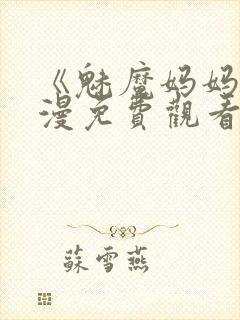 《魅魔妈妈
漫免費觀看
蘇雪燕